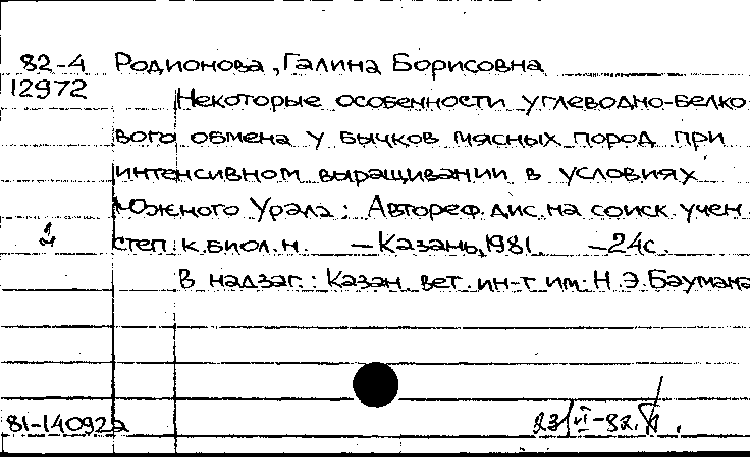 82-4 Родионова, Галина Борисовна
12972
Некоторые особенности углеводно-белко
вого обмена у бычков мясных пород при
интенсивном выращивании в условиях
Южного Урала: Автореф. дис. на соиск. учен.
степ. к. биол. н. — Казань, 1981. — 24с.
В надзаг.: Казан. вет. ин-т им. Н.Э.Баумана
81-14092а
23/VI-82.